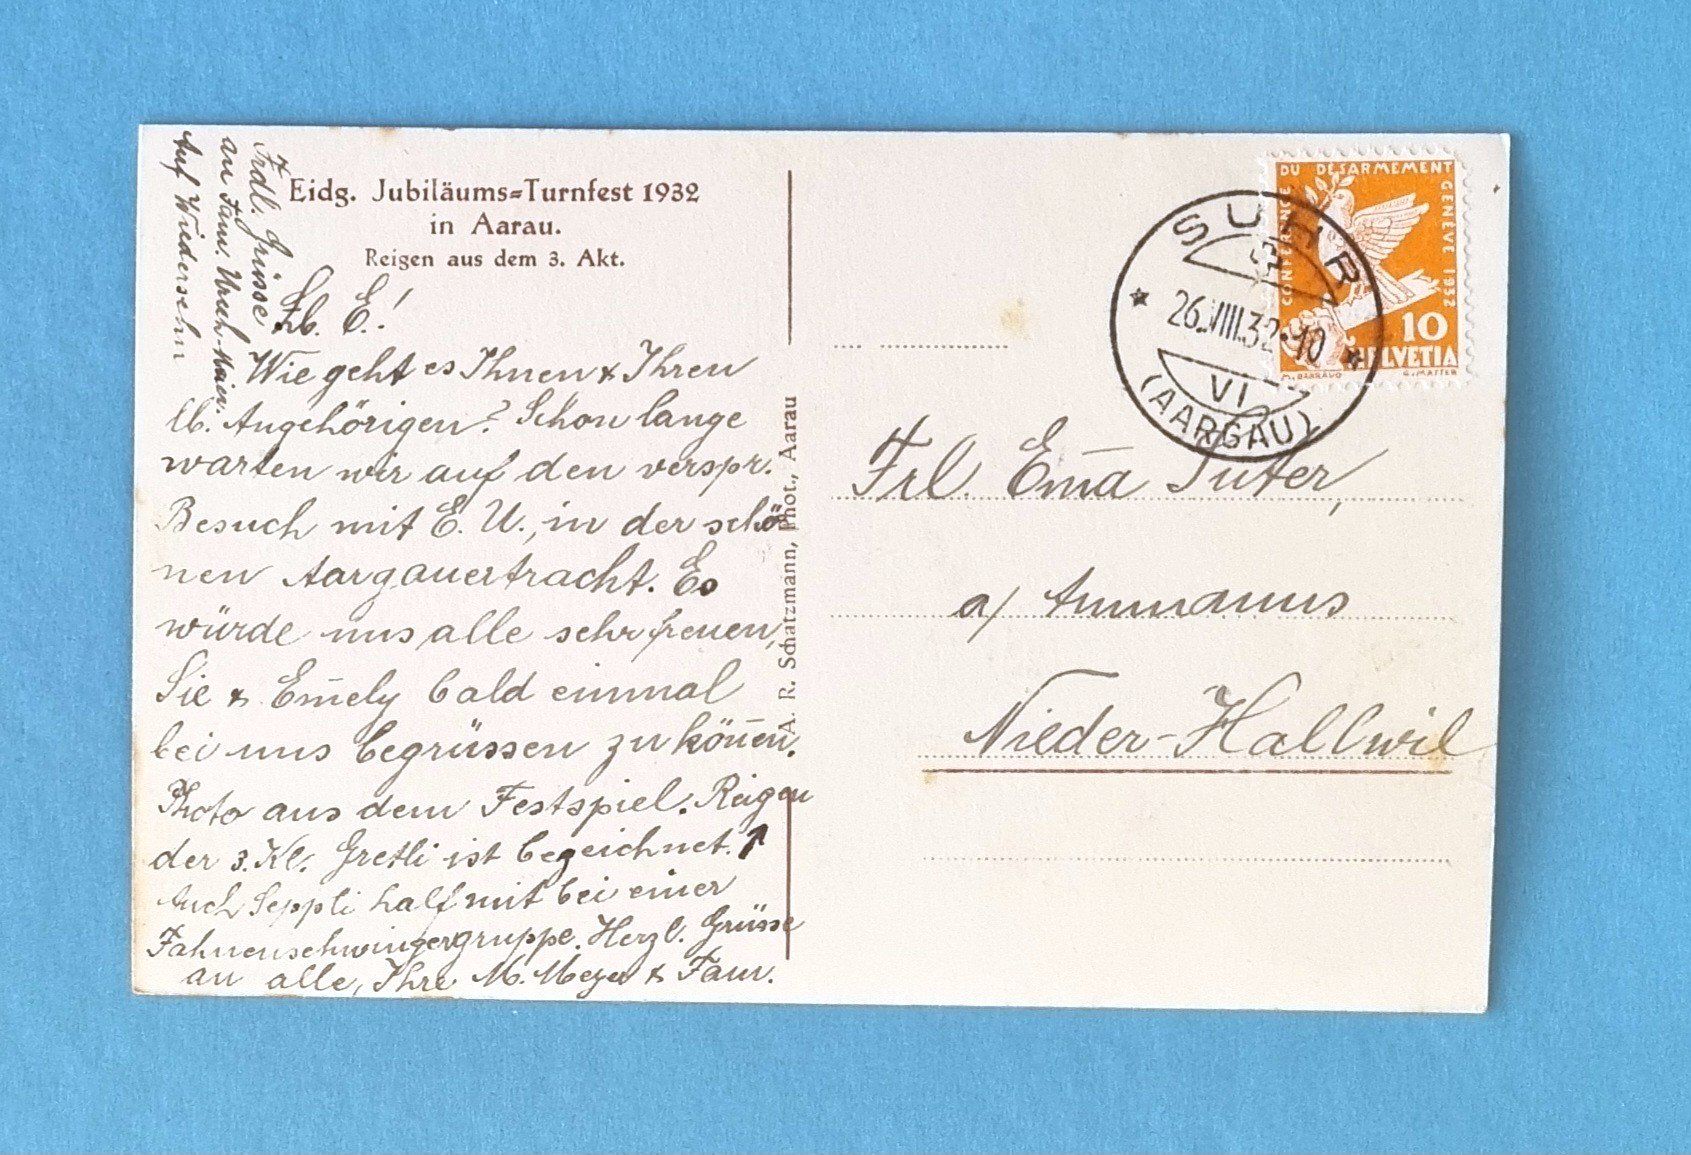 Eidg. Jubiläums=Turnfest 1932
in Aarau.
Reigen aus dem 3. Akt.
Lb. E.!
Wie geht es Ihnen & Ihren
lb. Angehörigen? Schon lange
warten wir auf den verspr.
Besuch mit E. U., in der schö
nen Aargauertracht. Es
würde uns alle sehr freuen,
Sie & Em̄ely bald einmal
bei uns begrüssen zu kön̄en.
Photo aus dem Festspiel. Reigen
der 3. Kl. Gretli ist bezeichnet. ↗
Auch Seppli half mit bei einer
Fahnenschwingergruppe. Herzl. Grüsse
an alle, Ihre M. Meyer & Fam.
Frdl. Grüsse
an Fam. Urech-
Auf Wiedersehn
A. R. Schatzmann, Phot., Aarau
CONFERENCE DU DESARMEMENT GENEVE 1932
10
HELVETIA
M. BARRAUD
SUHR
26.VIII.32-10
VI
(AARGAU)
Frl. Em̄a Suter,
a/ Ammanns
Nieder-Hallwil